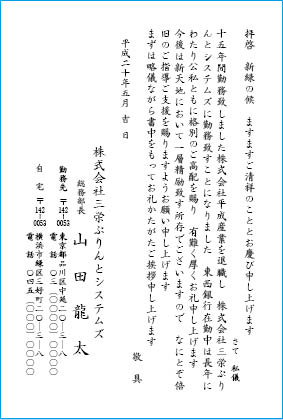 拝啓　新緑の候　ますますご清祥のこととお慶び申し上げます
さて　私儀
十五年間勤務致しました株式会社平成産業を退職し　株式会社三栄ぷり
んとシステムズに勤務致すことになりました　東西銀行在勤中は長年に
わたり公私ともに格別のご高配を賜り　有難く厚くお礼申し上げます
今後は新天地において一層精励致す所存でございますので　なにとぞ倍
旧のご指導ご支援を賜りますようお願い申し上げます
まずは略儀ながら書中をもってお礼かたがたご挨拶申し上げます
敬　具
平成二十年五月　吉　日
株式会社三栄ぷりんとシステムズ
総務部長　山　田　龍　太
勤務先　〒142-0053　東京都品川区中延二ー三ー八
電話　〇三　〇〇〇〇　〇〇〇〇
自　宅　〒142-0053　横浜市緑区三好町二〇ー三ー八
電話　〇四五　〇〇〇　〇〇〇〇